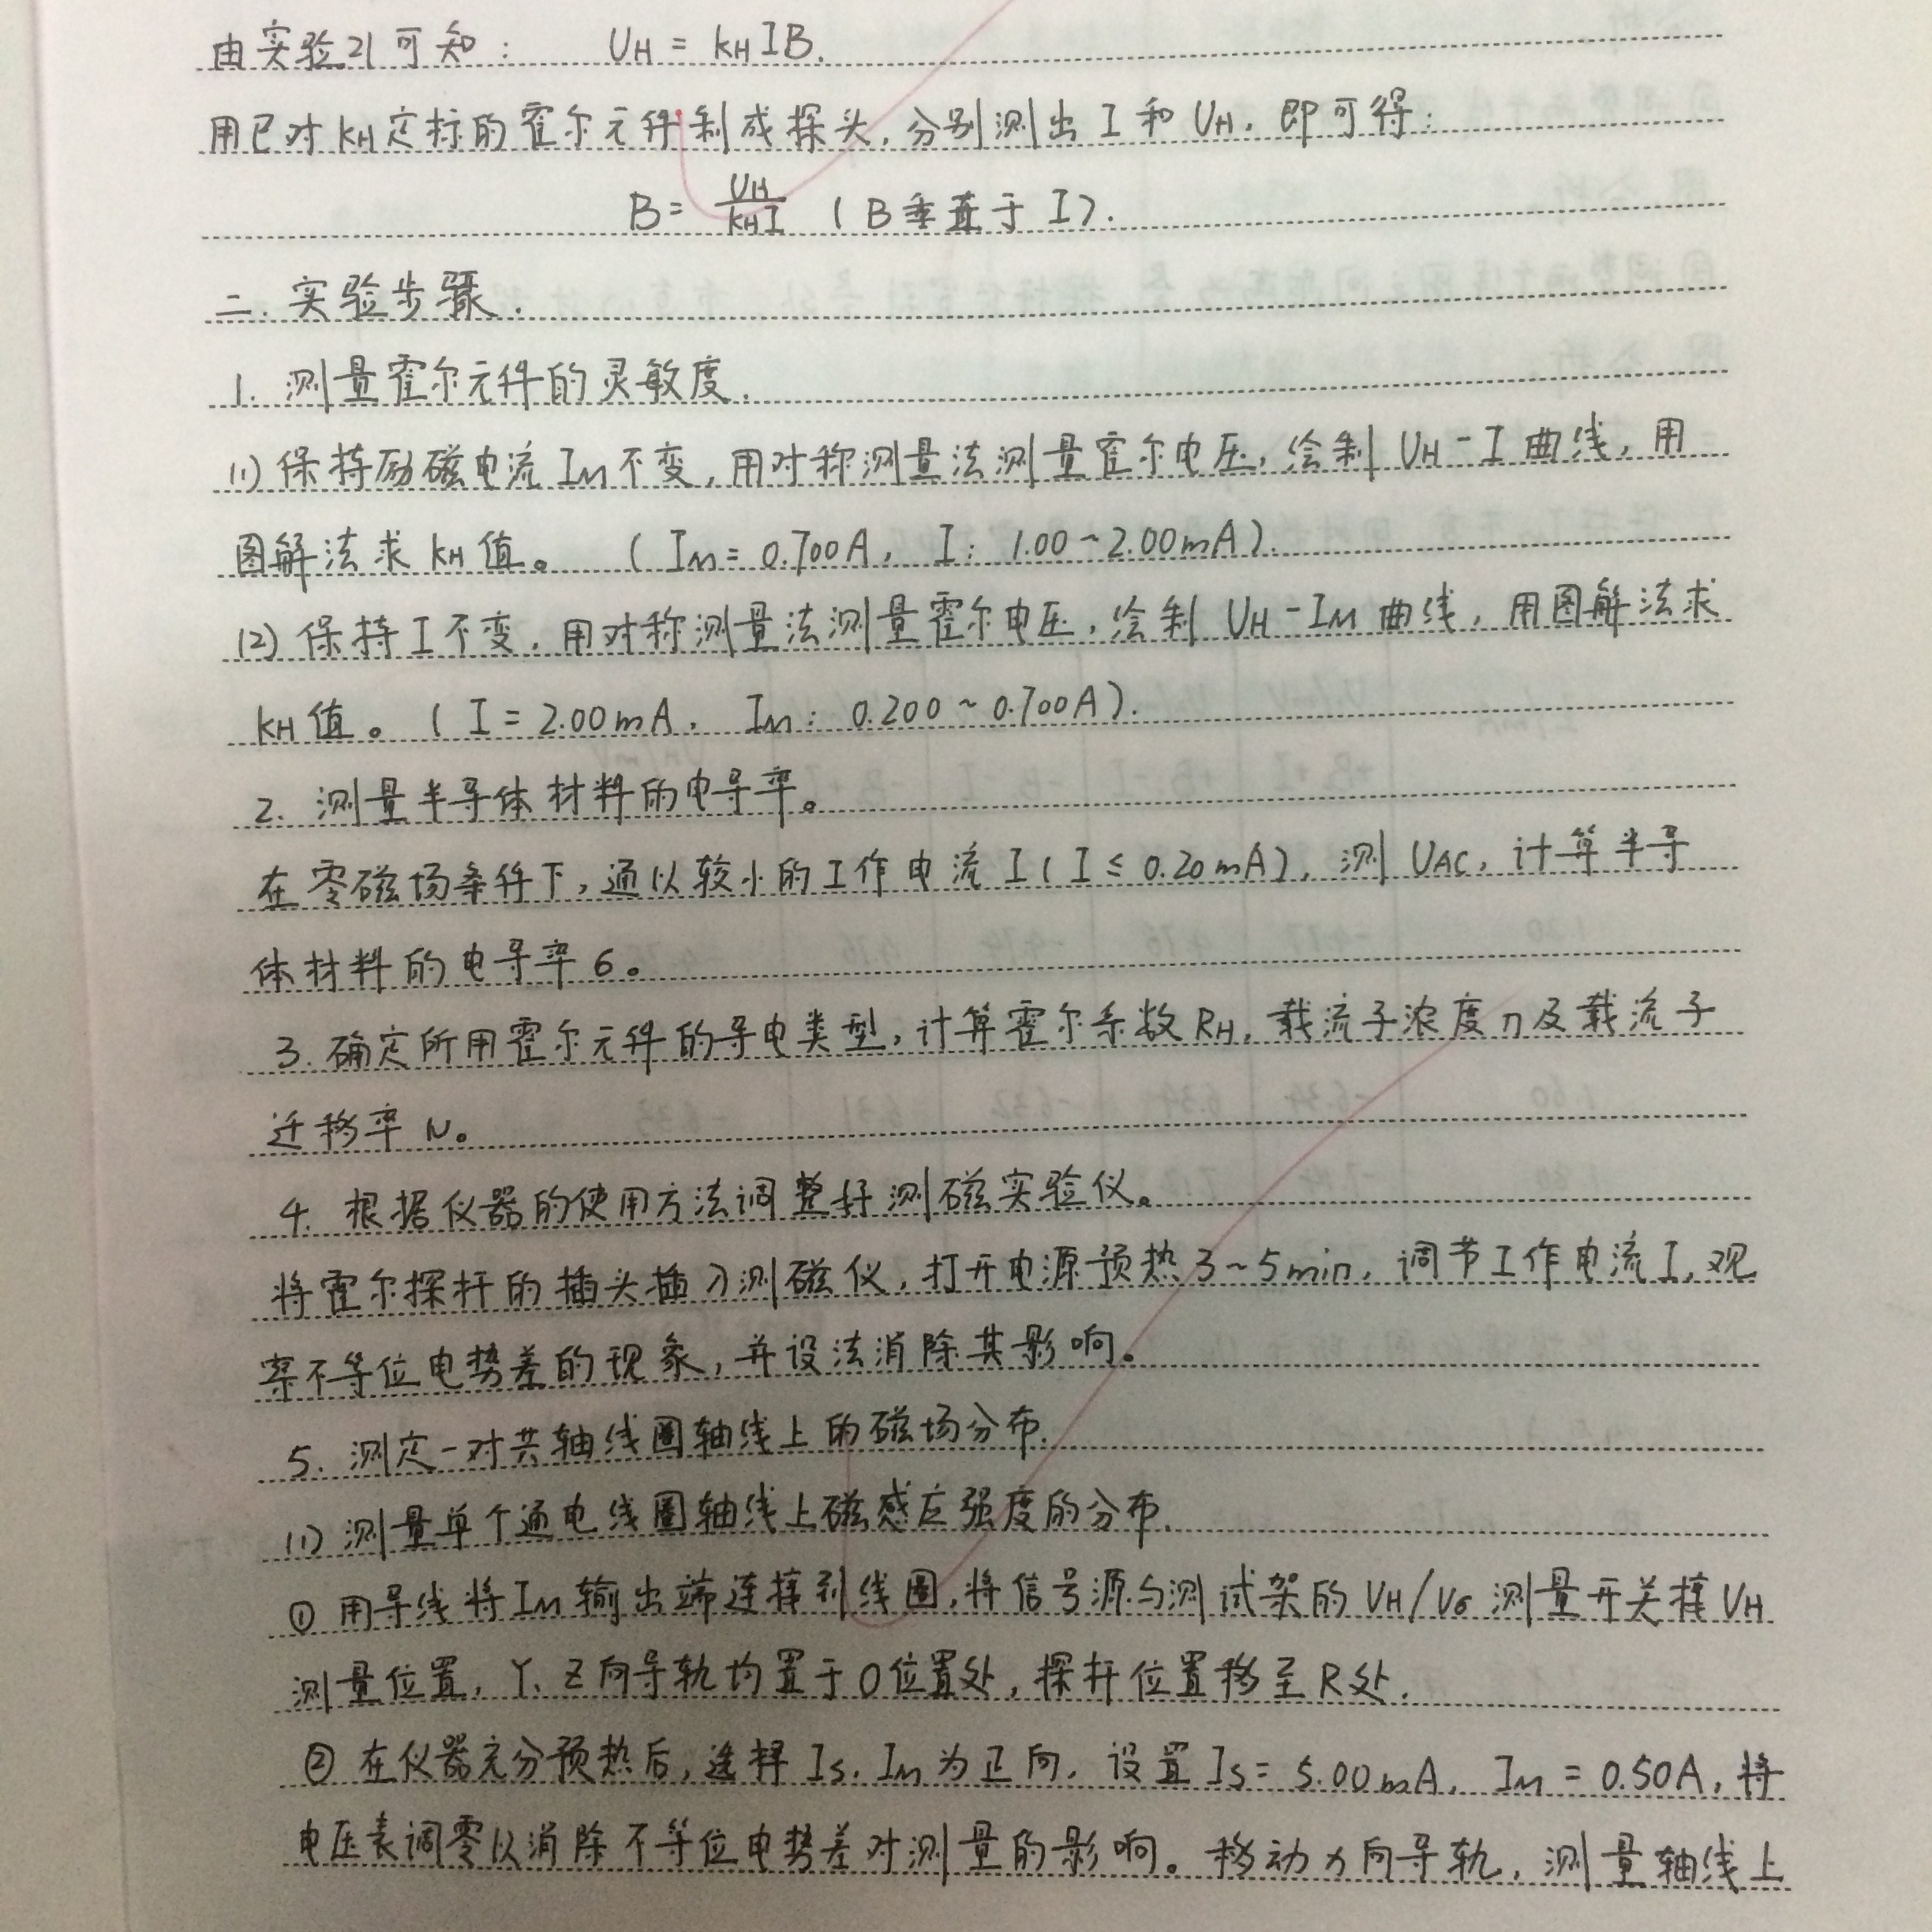 由实验21可知： UH = KHIB.
用已对KH定标的霍尔元件制成探头，分别测出I和UH，即可得：
B = UH/KHI （B垂直于I）.
二. 实验步骤.
1. 测量霍尔元件的灵敏度.
(1) 保持励磁电流IM不变，用对称测量法测量霍尔电压，绘制UH-I曲线，用
图解法求KH值。（IM = 0.700A, I: 1.00~2.00mA）.
(2) 保持I不变，用对称测量法测量霍尔电压，绘制UH-IM曲线，用图解法求
KH值。（I = 2.00mA, IM: 0.200~0.700A）.
2. 测量半导体材料的电导率。
在零磁场条件下，通以较小的工作电流I（I ≤ 0.20mA），测UAC，计算半导
体材料的电导率σ。
3. 确定所用霍尔元件的导电类型，计算霍尔系数RH，载流子浓度n及载流子
迁移率μ。
4. 根据仪器的使用方法调整好测磁实验仪。
将霍尔探杆的插头插入测磁仪，打开电源预热3~5min，调节工作电流I，观
察不等位电势差的现象，并设法消除其影响。
5. 测定一对共轴线圈轴线上的磁场分布.
(1) 测量单个通电线圈轴线上磁感应强度的分布.
① 用导线将IM输出端连接到线圈，将信号源与测试架的VH/Vσ测量开关接VH
测量位置，Y、Z向导轨均置于0位置处，探杆位置移至R处.
② 在仪器充分预热后，选择Is、IM为正向，设置Is = 5.00mA, IM = 0.50A，将
电压表调零以消除不等位电势差对测量的影响。移动X向导轨，测量轴线上